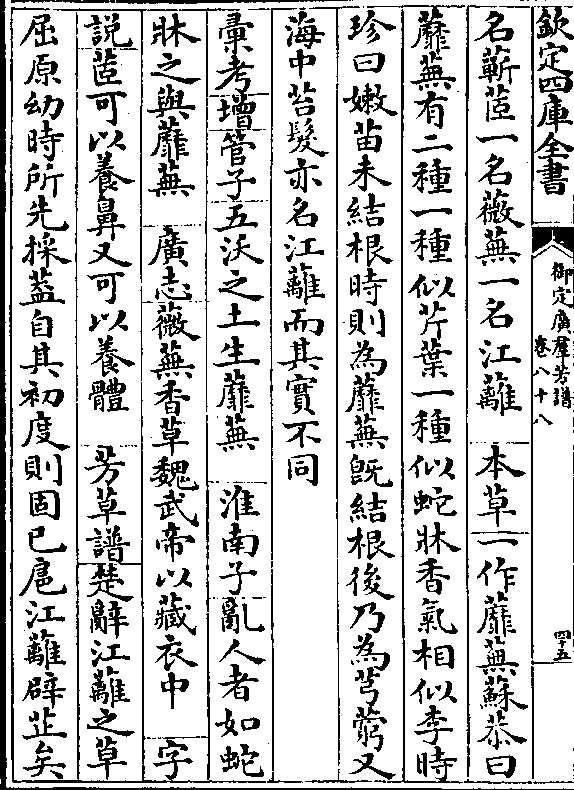 欽定四庫全書
御定廣羣芳譜
卷八十八
四十五
名蘄茝一名薇蕪一名江蘺 本草一作蘼蕪蘇恭曰
蘼蕪有二種一種似芹葉一種似蛇牀香氣相似李時
珍曰嫩苗未結根時則為蘼蕪既結根後乃為芎藭又
海中苔髮亦名江蘺而其實不同
彚考增管子五沃之土生蘼蕪 淮南子亂人者如蛇
牀之與蘼蕪 廣志薇蕪香草魏武帝以藏衣中 字
説茝可以養鼻又可以養體 芳草譜楚辭江蘺之草
屈原幼時所先採葢自其初度則固已扈江蘺辟芷矣